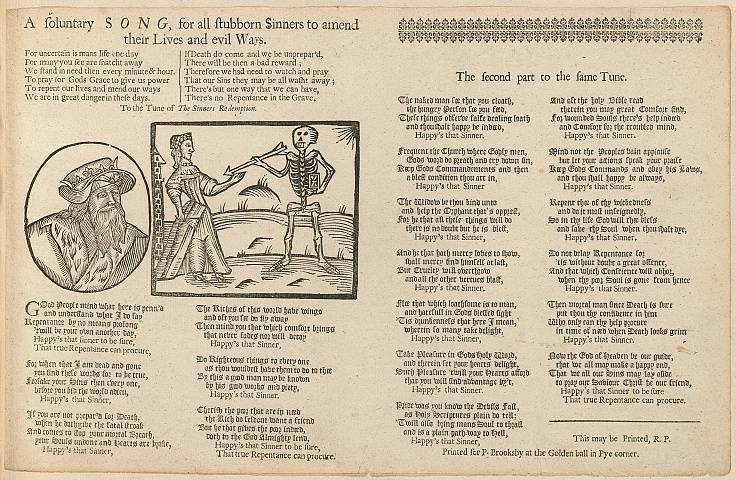 A soluntary SONG, for all stubborn Sinners to amend
their Lives and evil Ways.
For uncertain is mans life one day
For many you see are snatcht away
We stand in need then every minute & hour.
To pray for Gods Grace to give us power
To repent our lives and mend our ways
We are in great danger in these days.
If Death do come and we be unprepar'd,
There will be then a bad reward;
Therefore we had need to watch and pray
That our Sins they may be all washt away;
There's but one way that we can have,
There's no Repentance in the Grave.
To the Tune of The Sinners Redemption.
GOod People mind what here is penn'd
and understand what I do say
Repentance by no means prolong
'twill be your own another day,
Happy's that sinner to be sure,
That true Repentance can procure,
For when that I am dead and gone
you find these words for to be true,
Forsake your Sins then every one,
before you bid the world adieu,
Happy's that Sinner,
If you are not prepar'd for Death,
when he doth give the fatal stroak
And comes to stop your mortal Breath,
your Souls undone and Hearts are broke,
Happy's that Sinner,
The Riches of this world have wings
and oft you see do fly away
Then mind you that which comfort brings
that never fades nor will decay
Happy's that Sinner,
Do Righteous things to every one
as thou wouldest have them to do to thee
By this a good man may be known
by his good works and piety,
Happy's that Sinner,
Cherish the poor that are in need
the Rich do seldom want a friend
But he that gives the poor indeed,
doth to the God Almighty lend,
Happy's that Sinner to be sure,
That true Repentance can procure.
The second part to the same Tune.
The naked man see that you cloath,
the hungry Person see you feed,
These things observe false dealing loath
and thou shalt happy be indeed,
Happy's that Sinner.
Frequent the Church where Godly men,
Gods word do preach and cry down sin,
Keep Gods Commandements and then
a blest condition thou art in,
Happy's that Sinner
The Widow be thou kind unto
and help the Orphant that's opprest,
For he that all these things will do
there is no doubt but he is blest,
Happy's that Sinner,
And he that hath mercy loves to show,
shall mercy find himself at last,
But Cruelty will overthrow
and all the other vertues blast,
Happy's that Sinner.
Flee that which loathsome is to man,
and hatefull in Gods blessed sight
'Tis drunkenness that here I mean,
wherein so many take delight,
Happy's that Sinner,
Take Pleasure in Gods holy Word,
and therein set your hearts delight,
Such Pleasure 'twill your Hearts afford
that you will find advantage by't,
Happy's that Sinner,
Pride was you know the Devils Fall,
as holy Scriptures plain do tell;
'Twill also bring mans Soul to thrall
and is a plain path-way to Hell,
Happy's that Sinner,
And oft the holy Bible read
therein you may great Comfort find,
For wounded Souls there's help indeed
and Comfort for the troubled mind,
Happy's that Sinner.
Mind not the Peoples vain applause
but let your actions speak your praise
Keep Gods Commands and obey his Laws,
and thou shall happy be always,
Happy's that Sinner,
Repent thee of thy wickedness
and do it most unfeignedly,
So in thy God will thee bless
and save thy Soul when thou shalt dye,
Happy's that Sinner.
Do not delay Repentance for
'tis without doubt a great offence,
And that which Conscience will abhor,
when thy poor Soul is gone from hence
Happy's that Sinner.
Then mortal man since Death is sure
put thou thy confidence in him
Who only can thy help procure
in time of need when Death looks grim
Happy's that Sinner.
Now the God of Heaven be our guide,
that we all may make a happy end,
That we all our Sins may lay aside
to pray our Saviour Christ be our friend,
Happy's that Sinner to be sure
That true Repentance can procure.
This may be Printed, R. P.
Printed for P. Brooksby at the Golden ball in Pye corner.